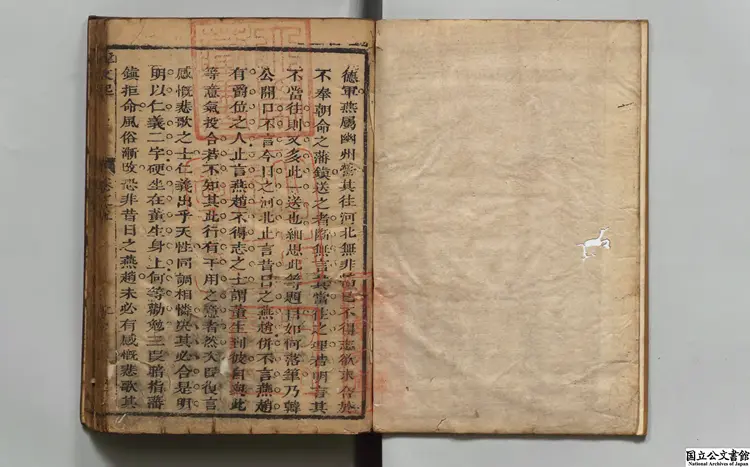 德軍燕屬幽州當其往河北無非已不得志欲求合於
不奉朝命之藩鎮送之者斷無言其當往之理若明言其
不當往則又多此一送也細思此等題目如何落筆乃韓
公開口不言今日之河北止言昔日之燕趙併不言燕趙
有爵位之人止言燕趙不得志之士謂董生到彼自與此
等意氣投合若不知其此行有干用之意者然次段復言
感慨悲歌之士仁義出乎天性同病相憐決其必合是明
明以仁義二字硬坐在董生身上何等勸勉三段暗指藩
鎮拒命風俗漸改恐非昔日之燕趙未必有感慨悲歌其
国立公文書館
National Archives of Japan